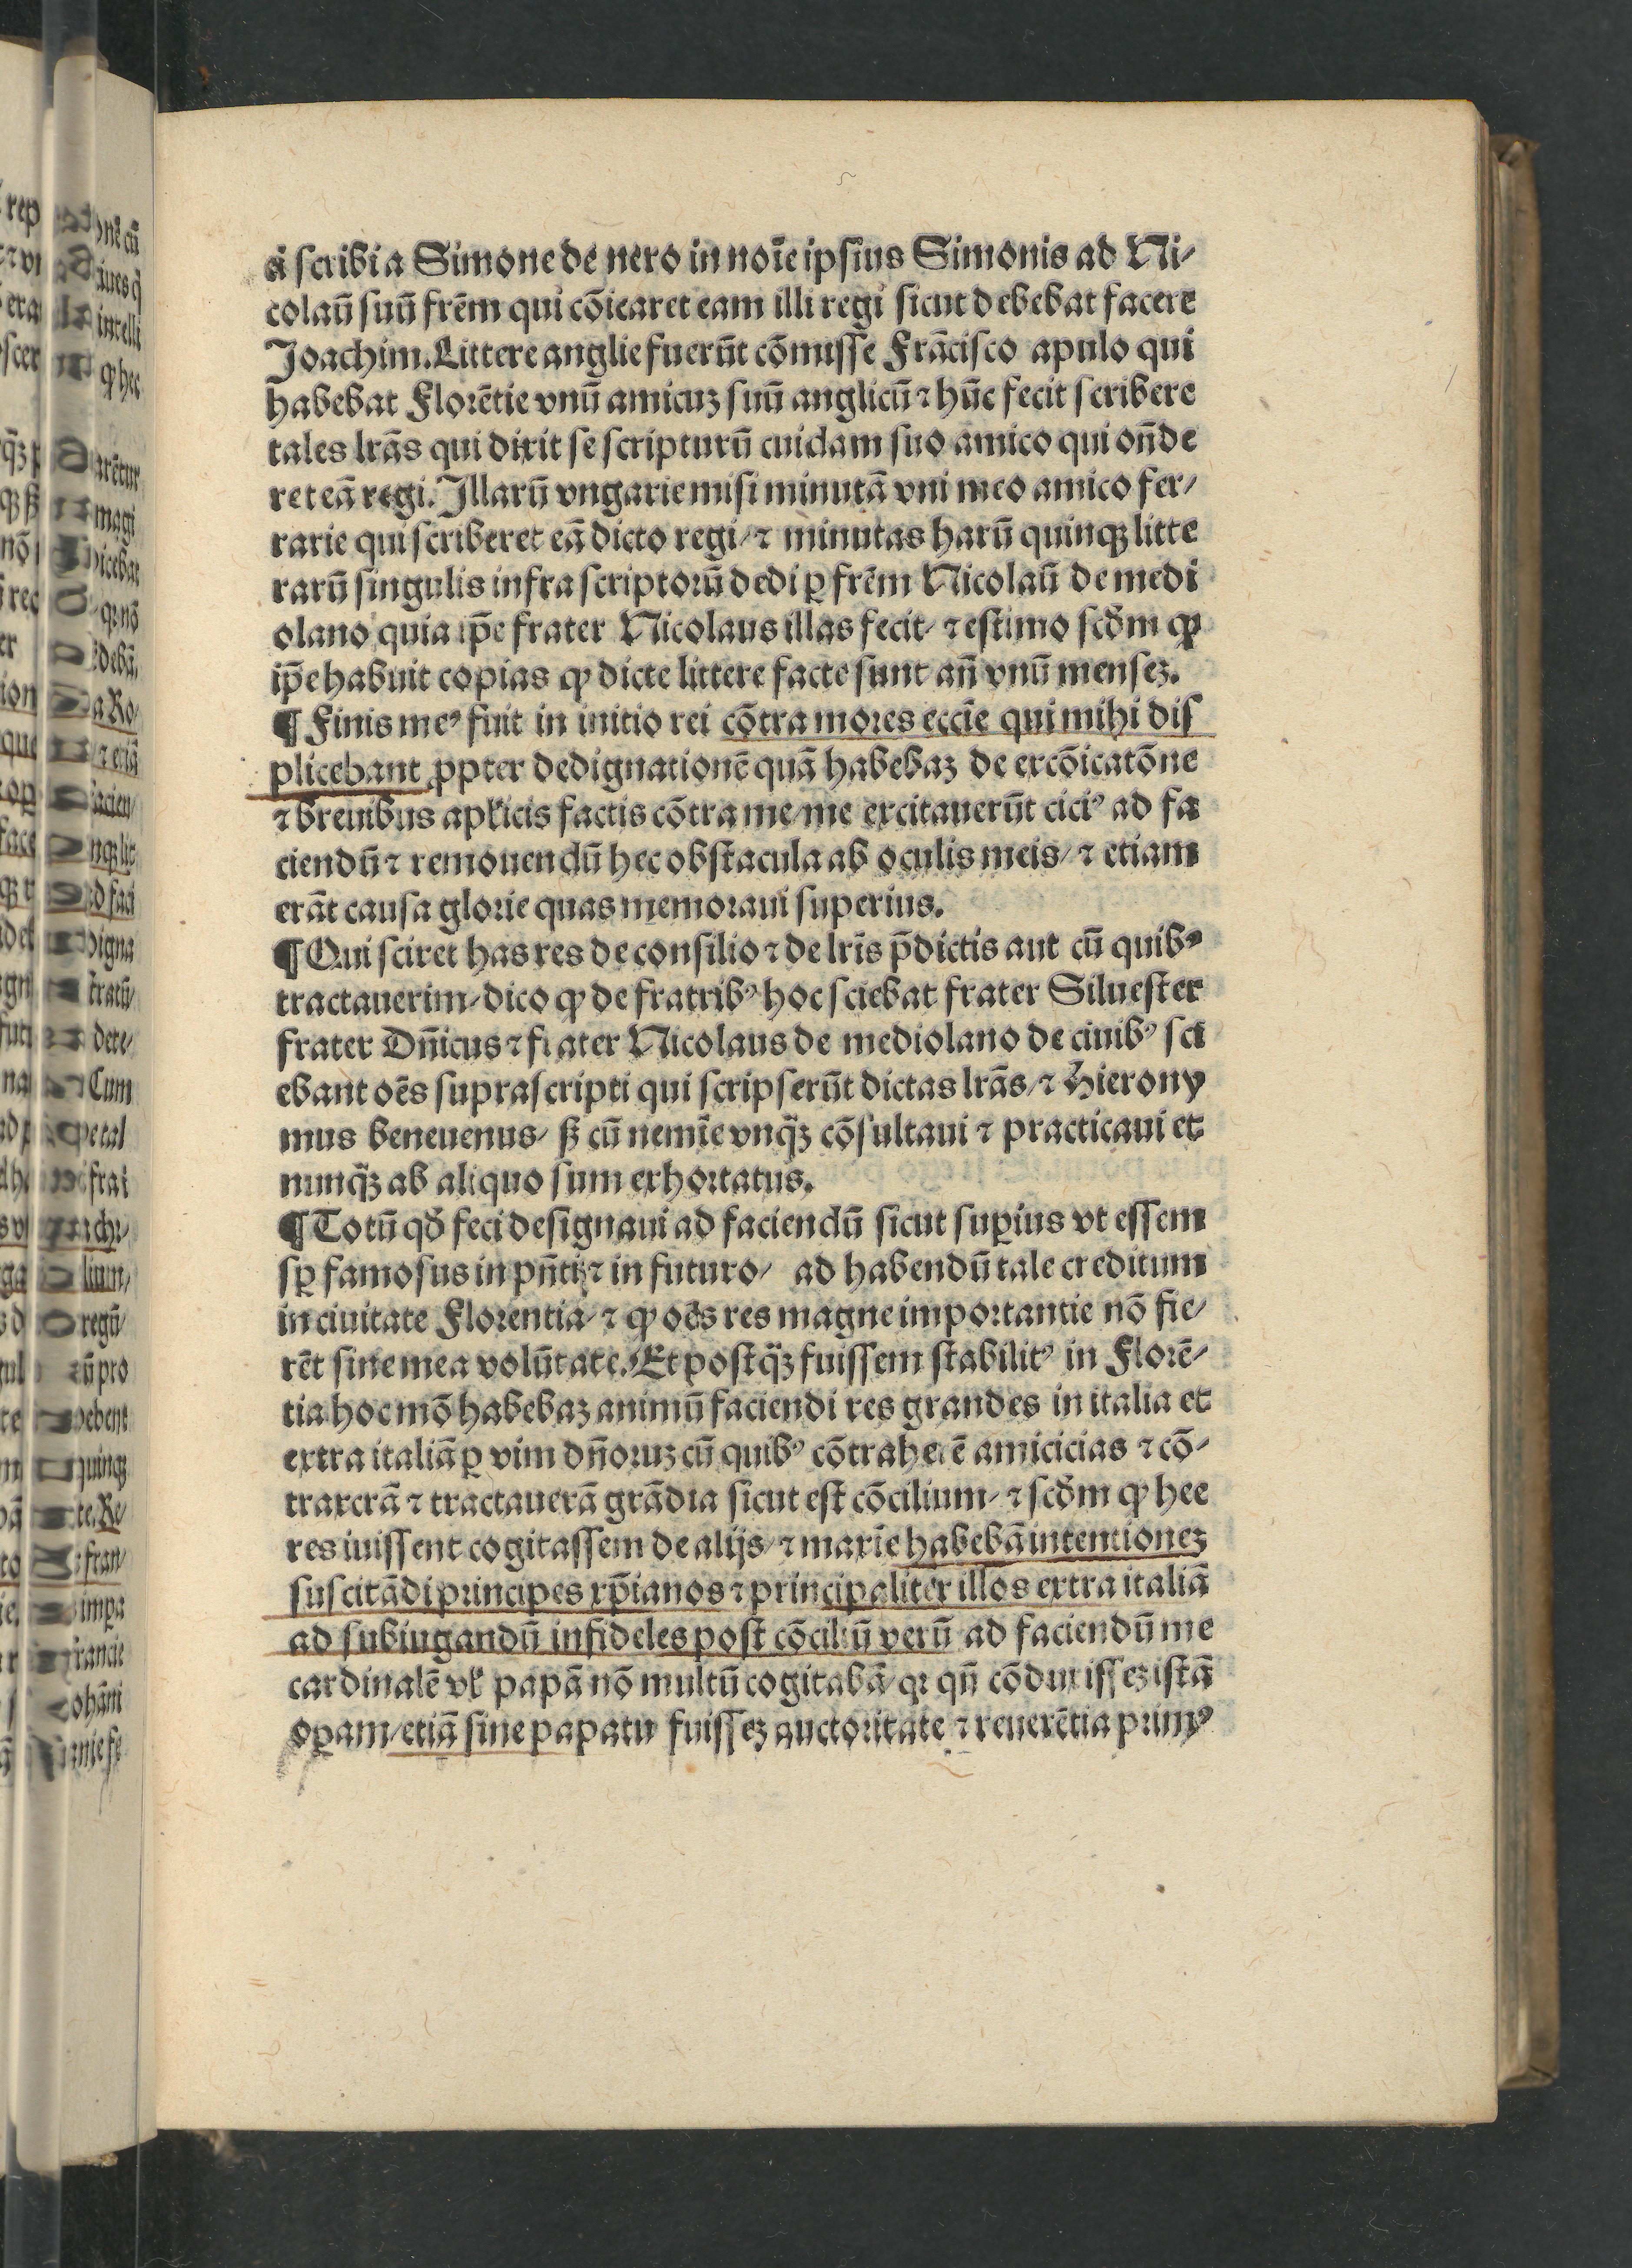 ci scribi a Simone de nero in noīe ipsius Simonis ad Ni⸗
colaū suū frēm qui cōīcaret eam illi regi sicut debebat facere
Joachim. Littere anglie fuerūt cōmisse Frācisco apulo qui
habebat Florētie vnū amicuʒ suū anglicū ⁊ hūc fecit scribere
tales lrās qui dixit se scripturū cuidam suo amico qui oñde
ret eā regi. Illarū vngarie misi minutā vni meo amico fer⸗
rarie qui scriberet eā dicto regi/ ⁊ minutas harū quinqꝫ litte
rarū singulis infra scriptorū dedi ꝑ frēm Nicolaū de medi
olano quia ip̄e frater Nicolaus illas fecit/ ⁊ estimo scd̄m ꝙ
ip̄e habuit copias ꝙ dicte littere facte sunt añ vnū menseʒ.
¶ Finis meꝰ fuit in initio rei cōtra mores ecclīe qui mihi dis
plicebant ꝓpter dedignationē quā habebaʒ de excōicatōne
⁊ breuibus apl̄icis factis cōtra me/ me excitauerūt citiꝰ ad fa
ciendū ⁊ remouendū hec obstacula ab oculis meis/ ⁊ etiam
erāt causa glorie quas memoraui superius.
¶ Qui sciret has res de consilio ⁊ de lrīs p̄dictis aut cū quibꝰ
tractauerim/ dico ꝙ de fratribꝰ hoc sciebat frater Siluester
frater Dñicus ⁊ frater Nicolaus de mediolano de ciuibꝰ sci
ebant oēs suprascripti qui scripserūt dictas lrās/ ⁊ Hierony
mus beneuenus/ sꝫ cū nemīe vnq̄ʒ cōsultaui ⁊ practicaui et
nunq̄ʒ ab aliquo sum exhortatus.
¶ Totū qd̄ feci designaui ad faciendū sicut suꝑius vt essem
sꝑ famosus in pñti ⁊ in futuro/ ad habendū tale creditum
in ciuitate Florentia/ ⁊ ꝙ oēs res magne importantie nō fie⸗
rēt sine mea volūtate. Et postq̄ʒ fuissem stabilitꝰ in Florē⸗
tia hoc mō habebaʒ animū faciendi res grandes in italia et
extra italiā ꝑ vim dñoruʒ cū quibꝰ cōtraherē amicicias ⁊ cō⸗
traxerā ⁊ tractauerā grādia sicut est cōcilium/ ⁊ scd̄m ꝙ hee
res iuissent cogitassem de alijs/ ⁊ maxīe habebā intentioneʒ
suscitādi principes xp̄ianos ⁊ principaliter illos extra italiā
ad subiugandū infideles post cōciliū verū ad faciendū me
cardinalē vl̄ papā nō multū cogitabā/ qꝛ qñ cōduxisseʒ istā
oꝑam/ etiā sine papatu fuisseʒ auctoritate ⁊ reuerētia primꝰ